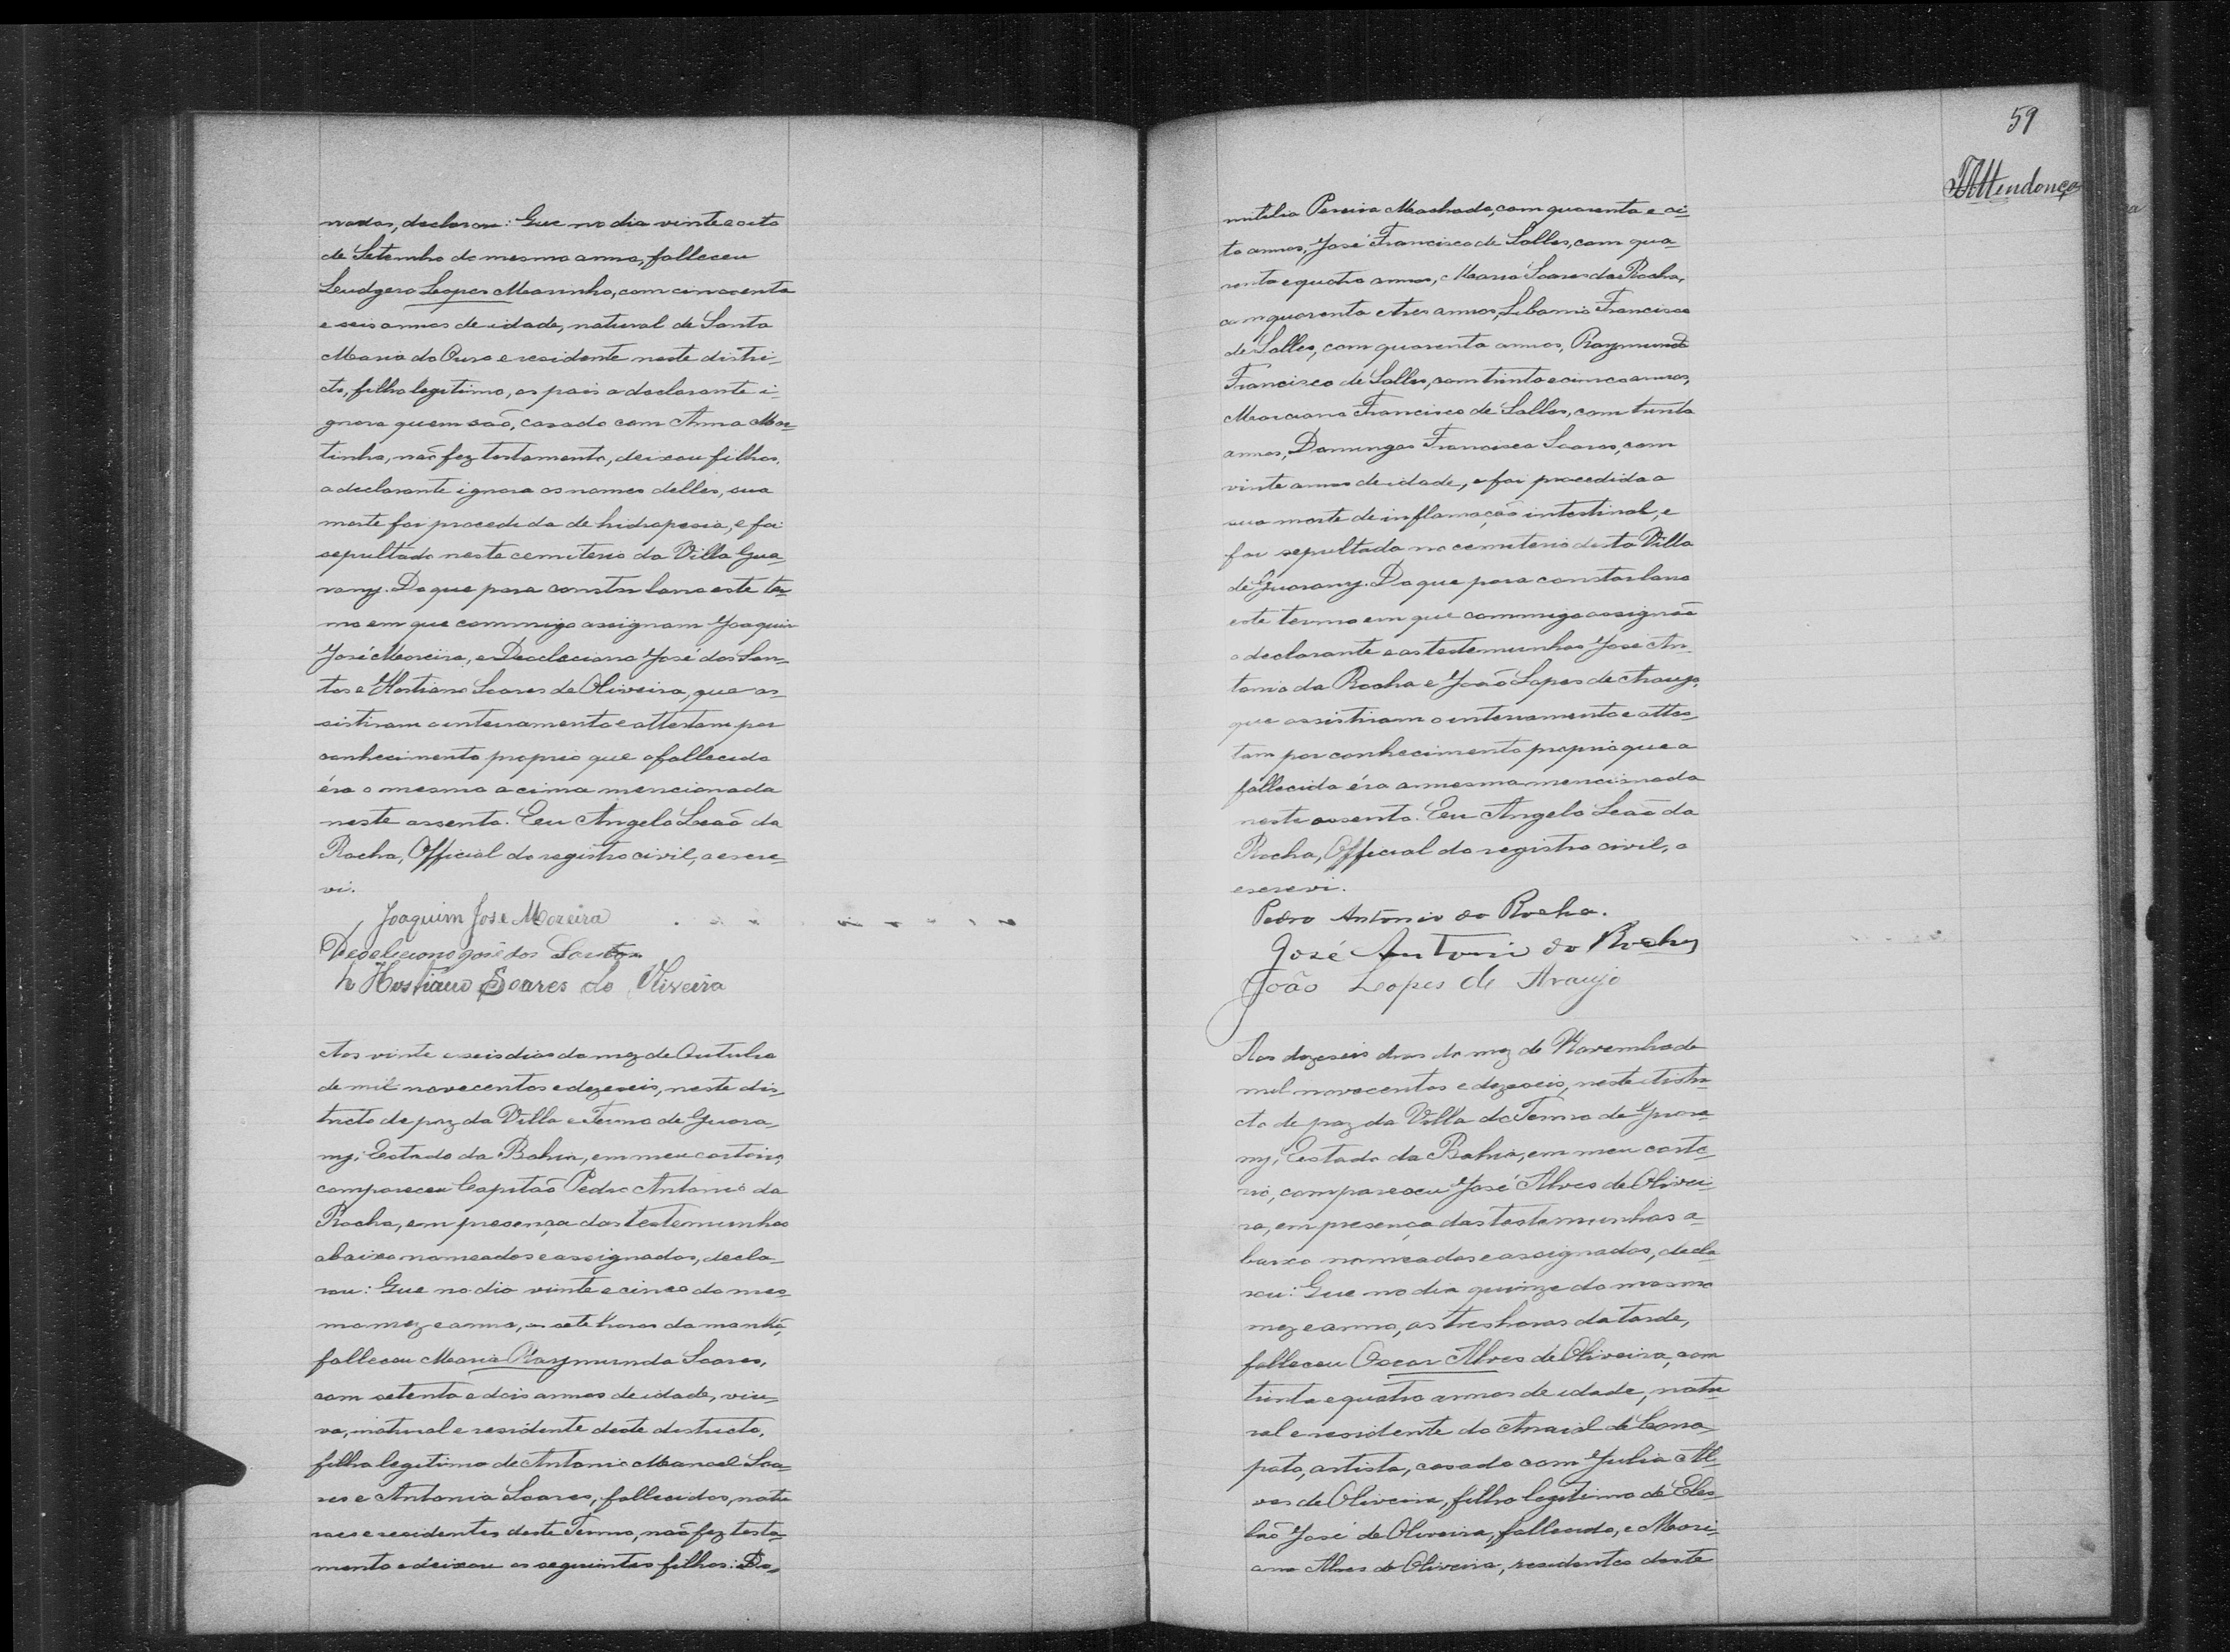 nadas, declarou: Que no dia vinte e oito
de Setembro do mesmo anno, falleceu
Leudgero Lopes Marinho, com cincoenta
e seis annos de idade, natural de Santa
Maria do Ouro e residente neste distri-
cto, filho legitimo, os pais o declarante i-
gnora quem são, casado com Anna Mar-
tinha, não fez testamento, deixou filhos,
o declarante ignora os nomes delles, sua
morte foi procedida de hidropesia, e foi
sepultado neste cemiterio da Villa Gua-
rany. Do que para constar lavro este ter-
mo em que commigo assignam Joaquim
José Moreira, e Deocleciano José dos San-
tos e Hostiano Soares de Oliveira, que as-
sistiram o enterramento e attestam por
conhecimento proprio que o fallecido
éra o mesmo acima mencionado
neste assento. Eu Angelo Leão da
Rocha, Official do registro civil, o escre-
vi.
Joaquim Jose Moreira
Deocleciano José dos Santos
Hostiano Soares de Oliveira
Aos vinte e seis dias do mez de Outubro
de mil novecentos e dezeseis, neste dis-
tricto de paz da Villa e Termo de Guara-
ny, Estado da Bahia, em meu cartorio,
compareceu Capitão Pedro Antonio da
Rocha, em presença das testemunhas
abaixo nomeados e assignados, decla-
rou: Que no dia vinte e cinco do mes-
mo mez e anno, as sete horas da manhã,
falleceu Maria Raymunda Soares,
com setenta e dois annos de idade, viu-
va, natural e residente deste districto,
filha legitima de Antonio Manoel Soa-
res e Antonia Soares, fallecidos, natu
raes e residentes deste Termo, não fez testa-
mento e deixou os seguintes filhos: Do-
59
Mendonça
mitilia Pereira Machado, com quarenta e oi-
to annos, José Francisco de Salles, com qua-
renta e quatro annos, Maria Soares da Rocha,
com quarenta e tres annos, Libanio Francisco
de Salles, com quarenta annos, Raymundo
Francisco de Salles, com trinta e cinco annos,
Marciano Francisco de Salles, com trinta
annos, Domingas Francisca Soares, com
vinte annos de idade, e foi procedida a
sua morte de inflamação intestinal, e
foi sepultada no cemiterio desta Villa
de Guarany. Do que para constar lavro
este termo em que commigo assignão
o declarante e as testemunhas José An-
tonio da Rocha e João Lopes de Araujo,
que assistiram o enterramento e attes-
tam por conhecimento proprio que a
fallecida éra a mesma mencionada
neste assento. Eu Angelo Leão da
Rocha, Official do registro civil, o
escrevi.
Pedro Antonio da Rocha.
José Antonio da Rocha
João Lopes de Araujo
Aos dezeseis dias do mez de Novembro de
mil novecentos e dezeseis, neste distri-
cto de paz da Villa do Termo de Guara-
ny, Estado da Bahia, em meu carto-
rio, compareceu José Alves de Olivei-
ra, em presença das testemunhas a-
baixo nomeadas e assignadas, decla
rou: Que no dia quinze do mesmo
mez e anno, as tres horas da tarde,
falleceu Oscar Alves de Oliveira, com
trinta e quatro annos de idade, natu-
ral e residente do Arraial de
artista, casado com Julia Al-
ves de Oliveira, filho legitimo de Eles-
bão José de Oliveira, fallecido, e Mari-
ana Alves de Oliveira, residentes deste